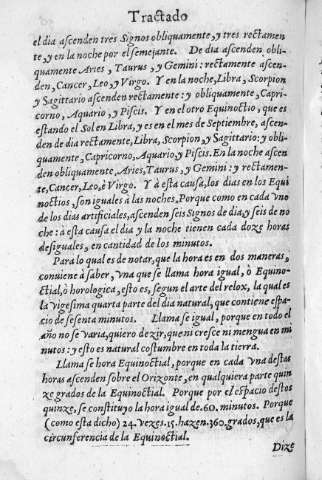 Tractado
el dia ascenden tres Signos obliquamente, y tres rectamen
te, y en la noche por el semejante. De dia ascenden obli-
quamente Aries, Taurus, y Gemini: rectamente ascen-
den, Cancer, Leo, y Virgo. Y en la noche, Libra, Scorpion
y Sagittario ascenden rectamente: y obliquamente, Capri-
corno, Aquario, y Piscis. Y en el otro Equinoctio, que es
estando el Sol en Libra, y es en el mes de Septiembre, ascen-
den de dia rectamente, Libra, Scorpion, y Sagittario: y obli-
quamente, Capricorno, Aquario, y Piscis. En la noche ascen
den obliquamente, Aries, Taurus, y Gemini: y rectamen-
te, Cancer, Leo, ò Virgo. Y à esta causa, los dias en los Equi
noctios, son iguales à las noches, Porque como en cada vno
de los dias artificiales, ascenden seis Signos de dia, y seis de no
che: à esta causa el dia y la noche tienen cada doze horas
desiguales, en cantidad de los minutos.
Para lo qual es de notar, que la hora es en dos maneras,
conuiene à saber, vna que se llama hora igual, ò Equino-
ctial, ò horologica, esto es, segun el arte del relox, la qual es
la vigesima quarta parte del dia natural, que contiene espa-
cio de sesenta minutos. Llama se igual, porque en todo el
año no se varia, quiero dezir, que ni cresce ni mengua en mi
nutos: y esto es natural costumbre en toda la tierra.
Llama se hora Equinoctial, porque en cada vna destas
horas ascenden sobre el Orizonte, en qualquiera parte quin
ze grados de la Equinoctial. Porque por el espacio destos
quinze, se constituyo la hora igual de .60. minutos. Porque
(como esta dicho) 24. vezes .15. hazen .360. grados, que es la
circunferencia de la Equinoctial.
Dize